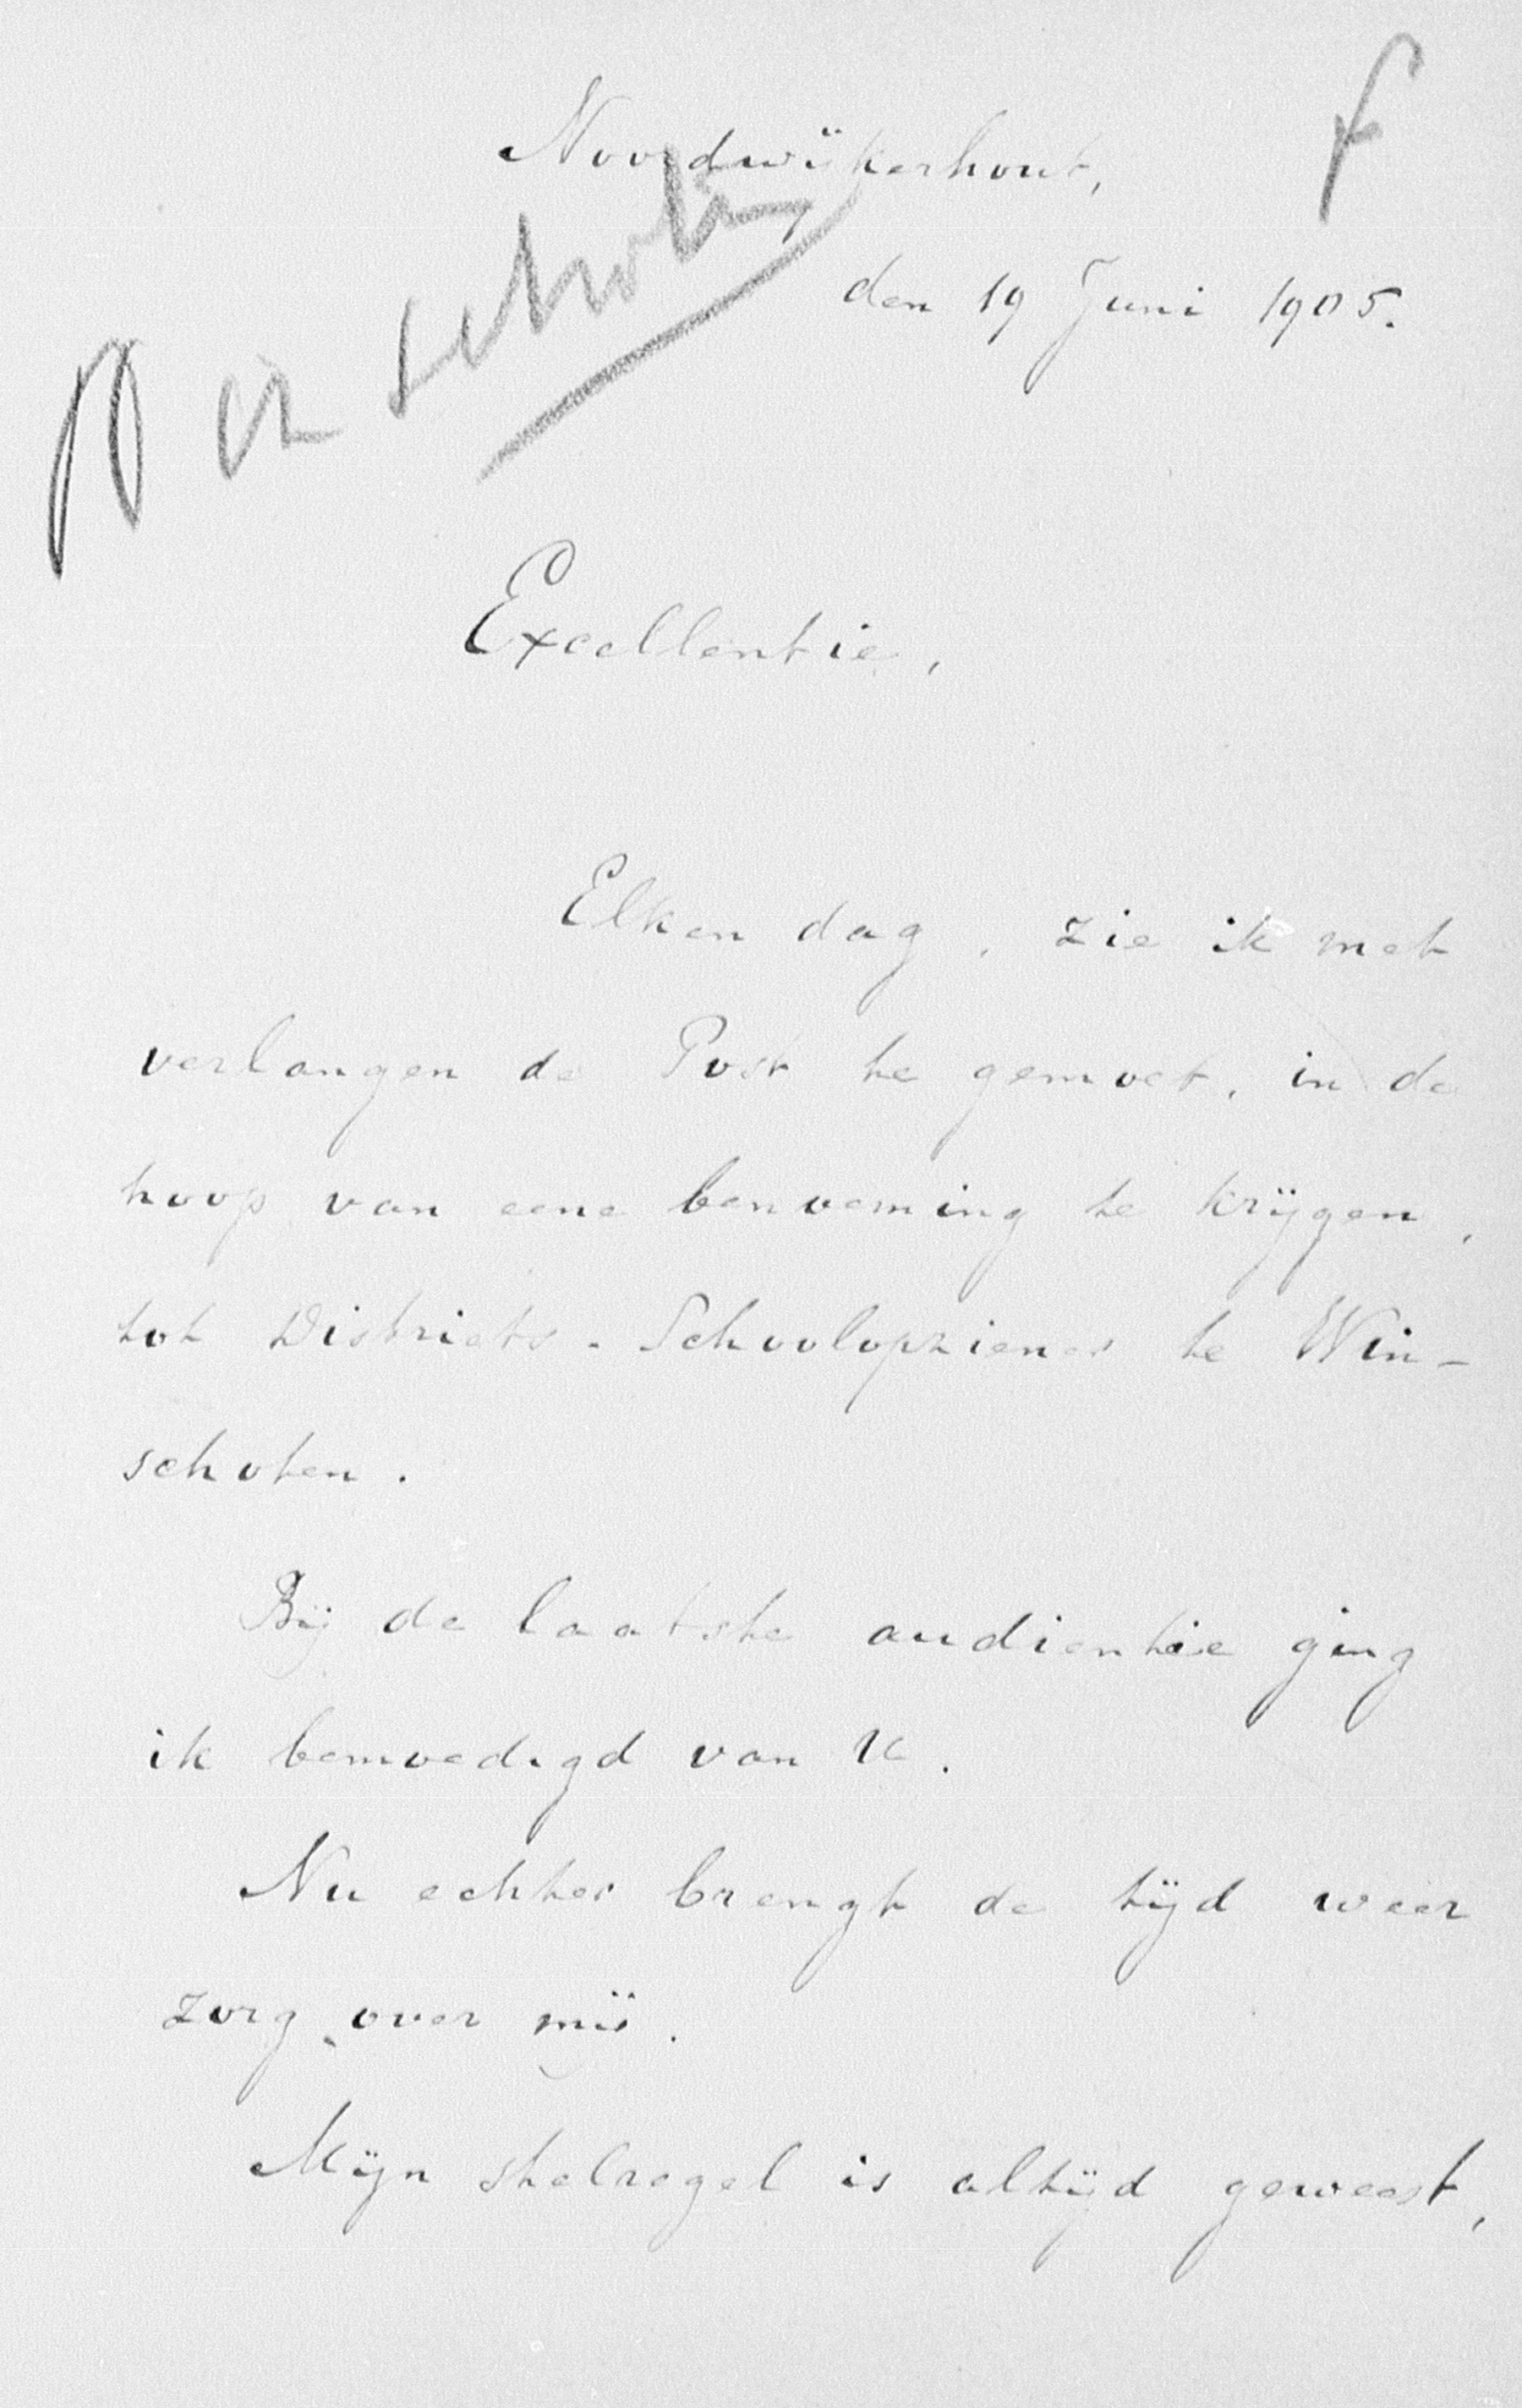 f
Noordwijkerhout,
den 19 Juni 1905.
Excellentie,
Elken dag, zie ik met
verlangen de Post te gemoet, in de
hoop van eene benoeming te krijgen,
tot Districts-Schoolopziener te Win-
schoten.
Bij de laatste audientie ging
ik bemoedigd van U.
Nu echter brengt de tijd weer
zorg over mij.
Mijn stelregel is altijd geweest,